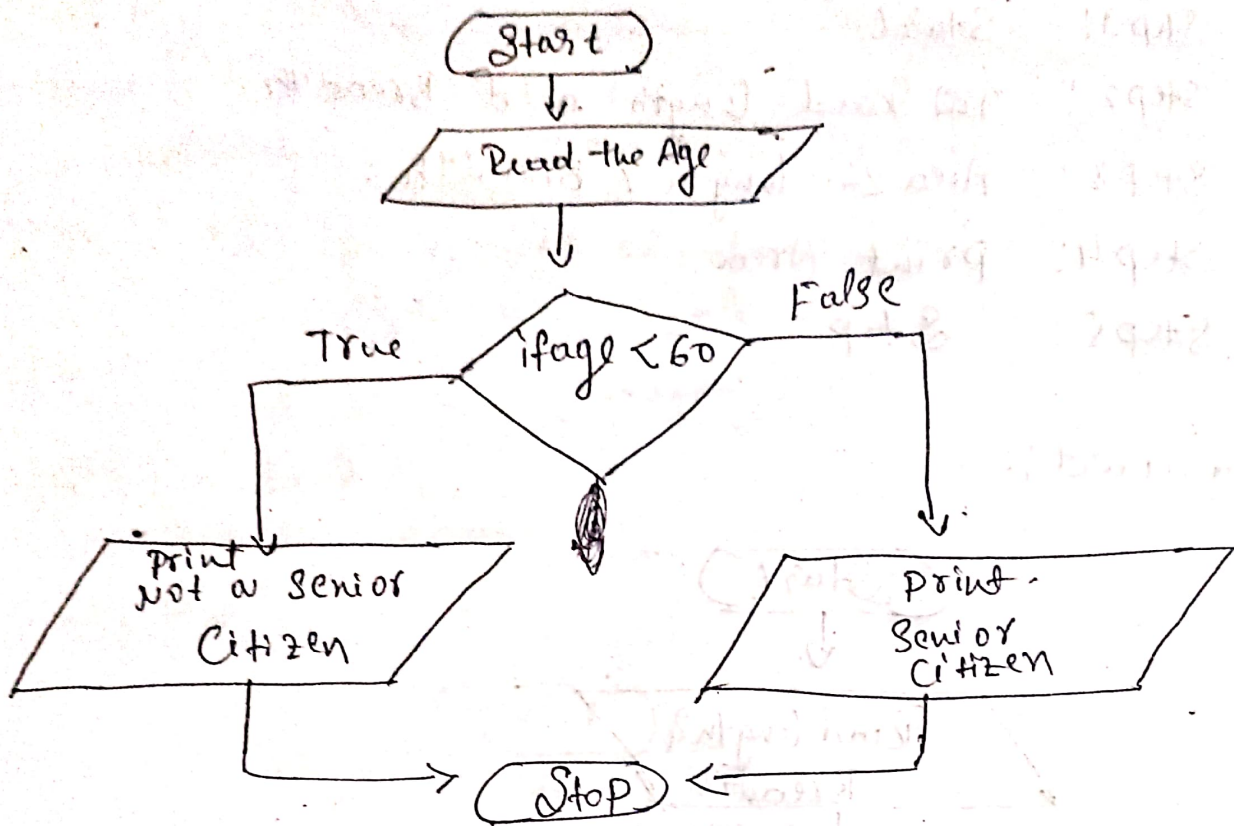 Start
Read the Age
False
True
if age < 60
print
Not a Senior
Citizen
print
Senior
Citizen
Stop